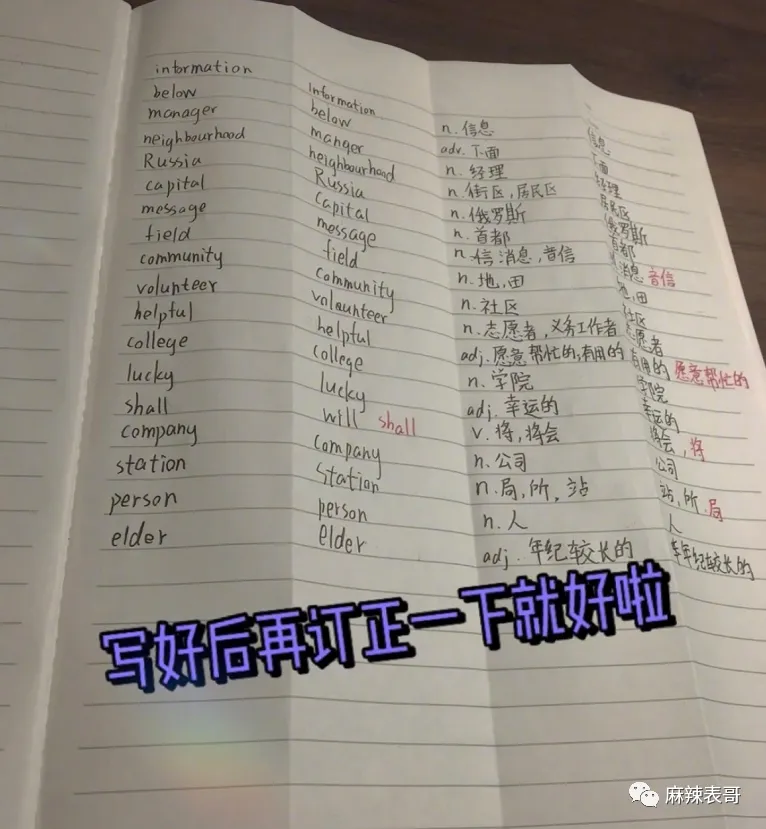 information
below
manager
neighbourhood
Russia
capital
message
field
community
volunteer
helpful
college
lucky
shall
company
station
person
elder
Information
below
manger
heighbourhood
Russia
Capital
message
field
Community
volaunteer
helpful
college
lucky
will shall
Company
Station
person
elder
n. 信息
adv. 下面
n. 经理
n. 街区,居民区
n. 俄罗斯
n. 首都
n. 信 消息,音信
n. 地,田
n. 社区
n. 志愿者,义务工作者
adj. 愿意帮忙的,有用的
n. 学院
adj. 幸运的
v. 将,将会
n. 公司
n. 局,所,站
n. 人
adj. 年纪较长的
信息
下面
经理
居民区
俄罗斯
首都
消息 音信
地,田
社区
志愿者
有用的 愿意帮忙的
学院
幸运的
将会,将
公司
站,所,局
人
年纪较长的
写好后再订正一下就好啦
麻辣表哥